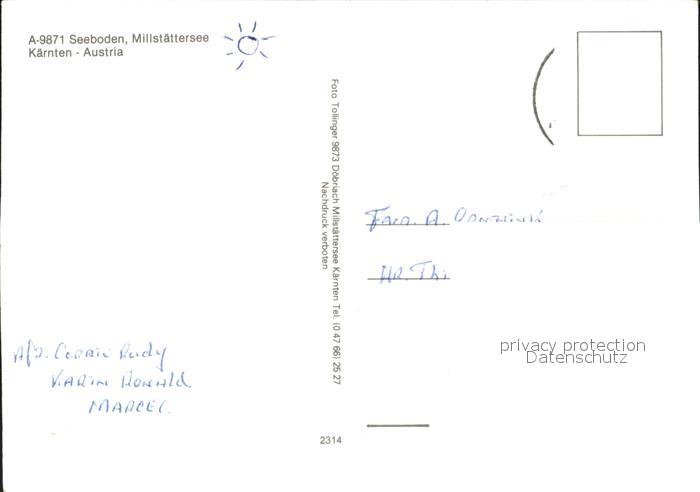 A-9871 Seeboden, Millstättersee
Kärnten - Austria
Foto Tollinger 9873 Döbriach Millstättersee Kärnten Tel. (0 47 66) 25 27
Nachdruck verboten
Fam. A.
privacy protection
Datenschutz
Afz. Corrie Rudy
Karin Ronald
MARCEL.
2314